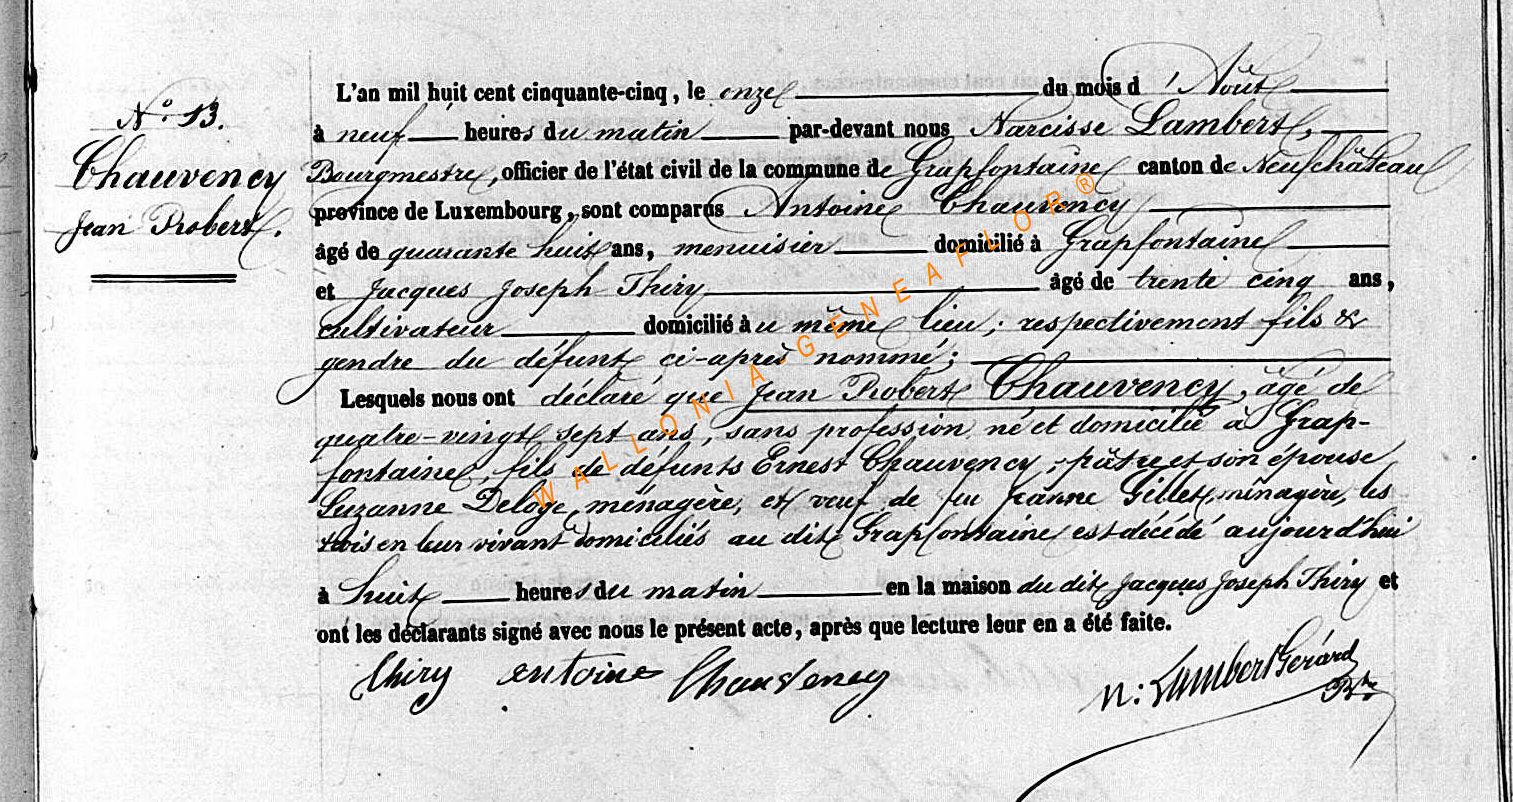 N.o 13.
Chauvency
Jean Robert.
L'an mil huit cent cinquante-cinq, le onze du mois d'Août
à neuf heures du matin par-devant nous Narcisse Lambert,
Bourgmestre, officier de l'état civil de la commune de Grapfontaine canton de Neufchâteau
province de Luxembourg, sont comparus Antoine Chauvency
âgé de quarante huit ans, menuisier domicilié à Grapfontaine
et Jacques Joseph Thiry âgé de trente cinq ans,
cultivateur domicilié au même lieu; respectivement fils &
gendre du défunt ci-après nommé;
Lesquels nous ont déclaré que Jean Robert Chauvency, âgé de
quatre-vingt sept ans, sans profession né et domicilié à Grap-
fontaine, fils de défunts Ernest Chauvency, pâtre et son épouse
Suzanne Deloge, ménagère, et veuf de feu Jeanne Gillet, ménagère, les
trois en leur vivant domiciliés au dit Grapfontaine est décédé aujourd'hui
à huit heures du matin en la maison du dit Jacques Joseph Thiry et
ont les déclarants signé avec nous le présent acte, après que lecture leur en a été faite.
Thiry antoine Chauvency
N: Lambert Gérard
WALLONIA-GENEAFLOR®